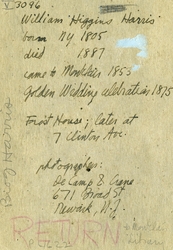 V 3096
William Higgins Harris
born NY 1805
died 1887
came to Montclair 1855
Golden Wedding celebration 1875
Frost House; later at
7 Clinton Ave.
photographer:
De Camp & Crane
671 Broad St
Newark, N.J.
RETURN